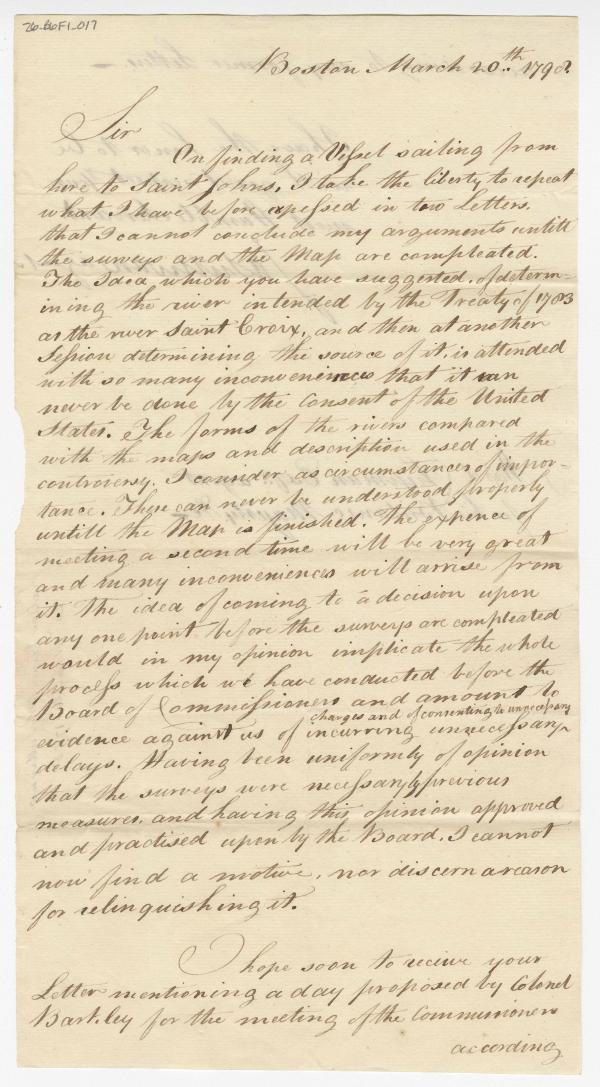 76-B6F1-017
Boston March 20.th 1798.
Sir
On finding a Vessel sailing from
here to Saint Johns, I take the liberty to repeat
what I have before expessed in tow Letters,
that I cannot conclude my arguments untill
the surveys and the Map are compleated.
The Idea, which you have suggested, of determ-
ining the river intended by the Treaty of 1783
as the river Saint Croix, and then at another
Session determining the source of it, is attended
with so many inconveniences that it can
never be done by the consent of the United
States. The forms of the rivers compared
with the maps and description used in the
controversy, I consider as circumstances of impor-
tance. These can never be understood properly
untill the Map is finished. The expence of
meeting a second time will be very great
and many inconveniences will arrise from
it. The idea of coming to a decision upon
any one point before the surveys are compleated
would in my opinion implicate the whole
process which we have conducted before the
Board of Commissioners and amount to
charges and of consenting to unnecessary
evidence against us of incurring unnecessary
delays. Having been uniformly of opinion
that the surveys were necessaryly previous
measures, and having this opinion approved
and practised upon by the Board, I cannot
now find a motive, nor discern a reason
for relinquishing it.
I hope soon to recive your
Letter mentioning a day proposed by Colonel
Barkley for the meeting of the Commissioners
according